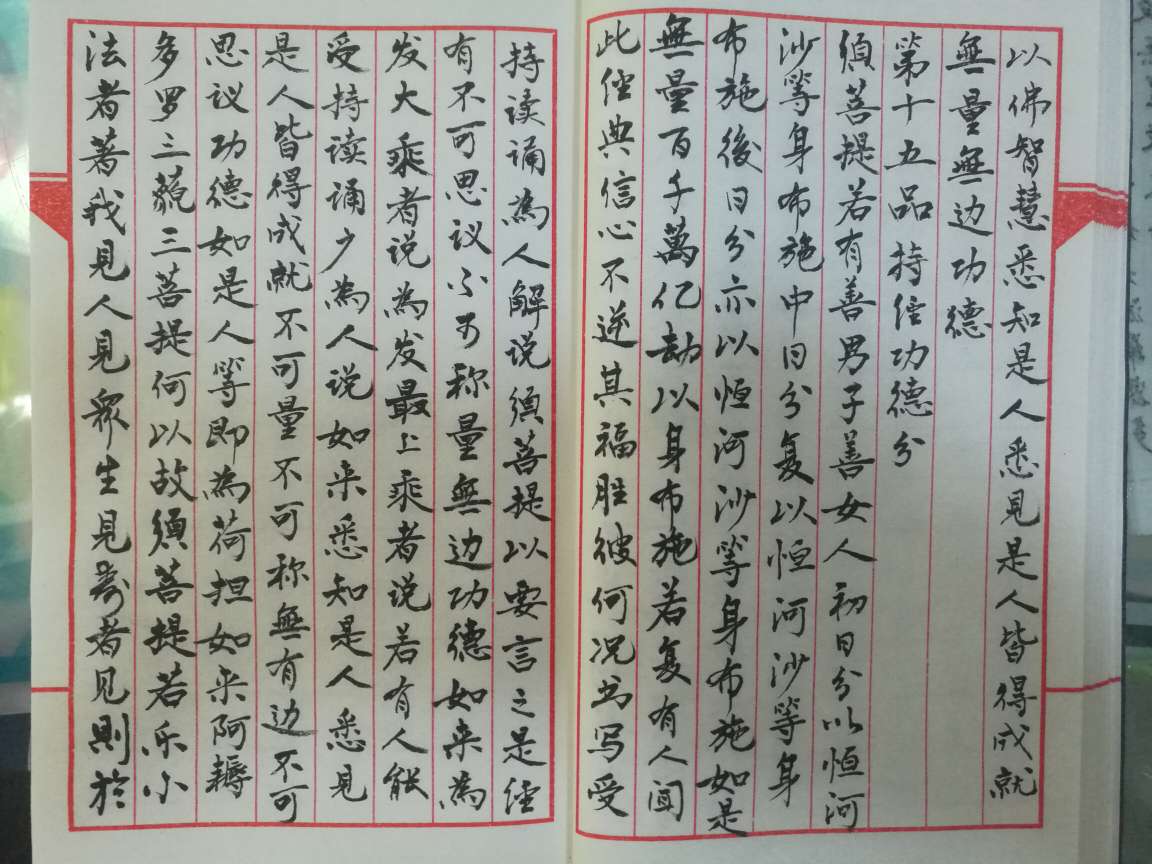 以佛智慧悉知是人悉见是人皆得成就
無量無边功德
第十五品持经功德分
須菩提若有善男子善女人初日分以恒河
沙等身布施中日分复以恒河沙等身
布施後日分亦以恒河沙等身布施如是
無量百千萬亿劫以身布施若复有人闻
此经典信心不逆其福胜彼何况书写受
持读诵為人解说須菩提以要言之是经
有不可思议不可称量無边功德如来為
发大乘者说為发最上乘者说若有人能
受持读诵广為人说如来悉知是人悉見
是人皆得成就不可量不可称無有边不可
思议功德如是人等即為荷担如来阿耨
多罗三藐三菩提何以故須菩提若乐小
法者著我見人見衆生見寿者見則於